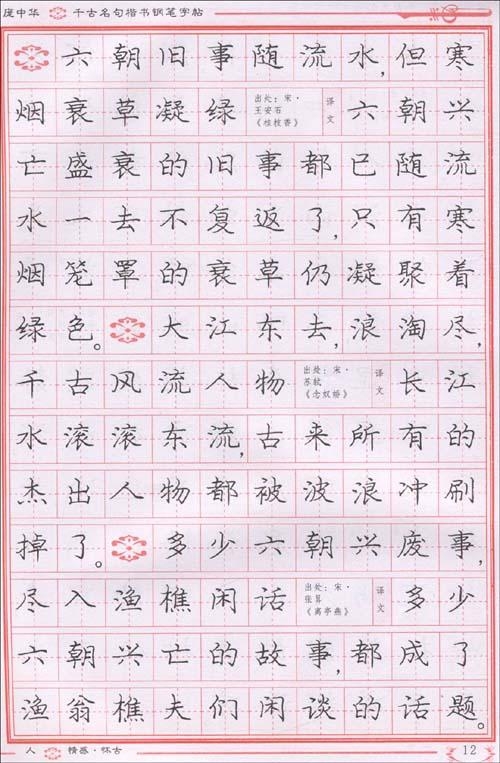 庞中华 千古名句楷书钢笔字帖
六朝旧事随流水,但寒
烟衰草凝绿 出处:宋·王安石《桂枝香》 译文 六朝兴
亡盛衰的旧事都已随流
水一去不复返了,只有寒
烟笼罩的衰草仍凝聚着
绿色。 大江东去,浪淘尽,
千古风流人物 出处:宋·苏轼《念奴娇》 译文 长江
水滚滚东流,古来所有的
杰出人物都被波浪冲刷
掉了。 多少六朝兴废事,
尽入渔樵闲话 出处:宋·张昇《离亭燕》 译文 多少
六朝兴亡的故事,都成了
渔翁樵夫们闲谈的话题。
人 情感·怀古 12